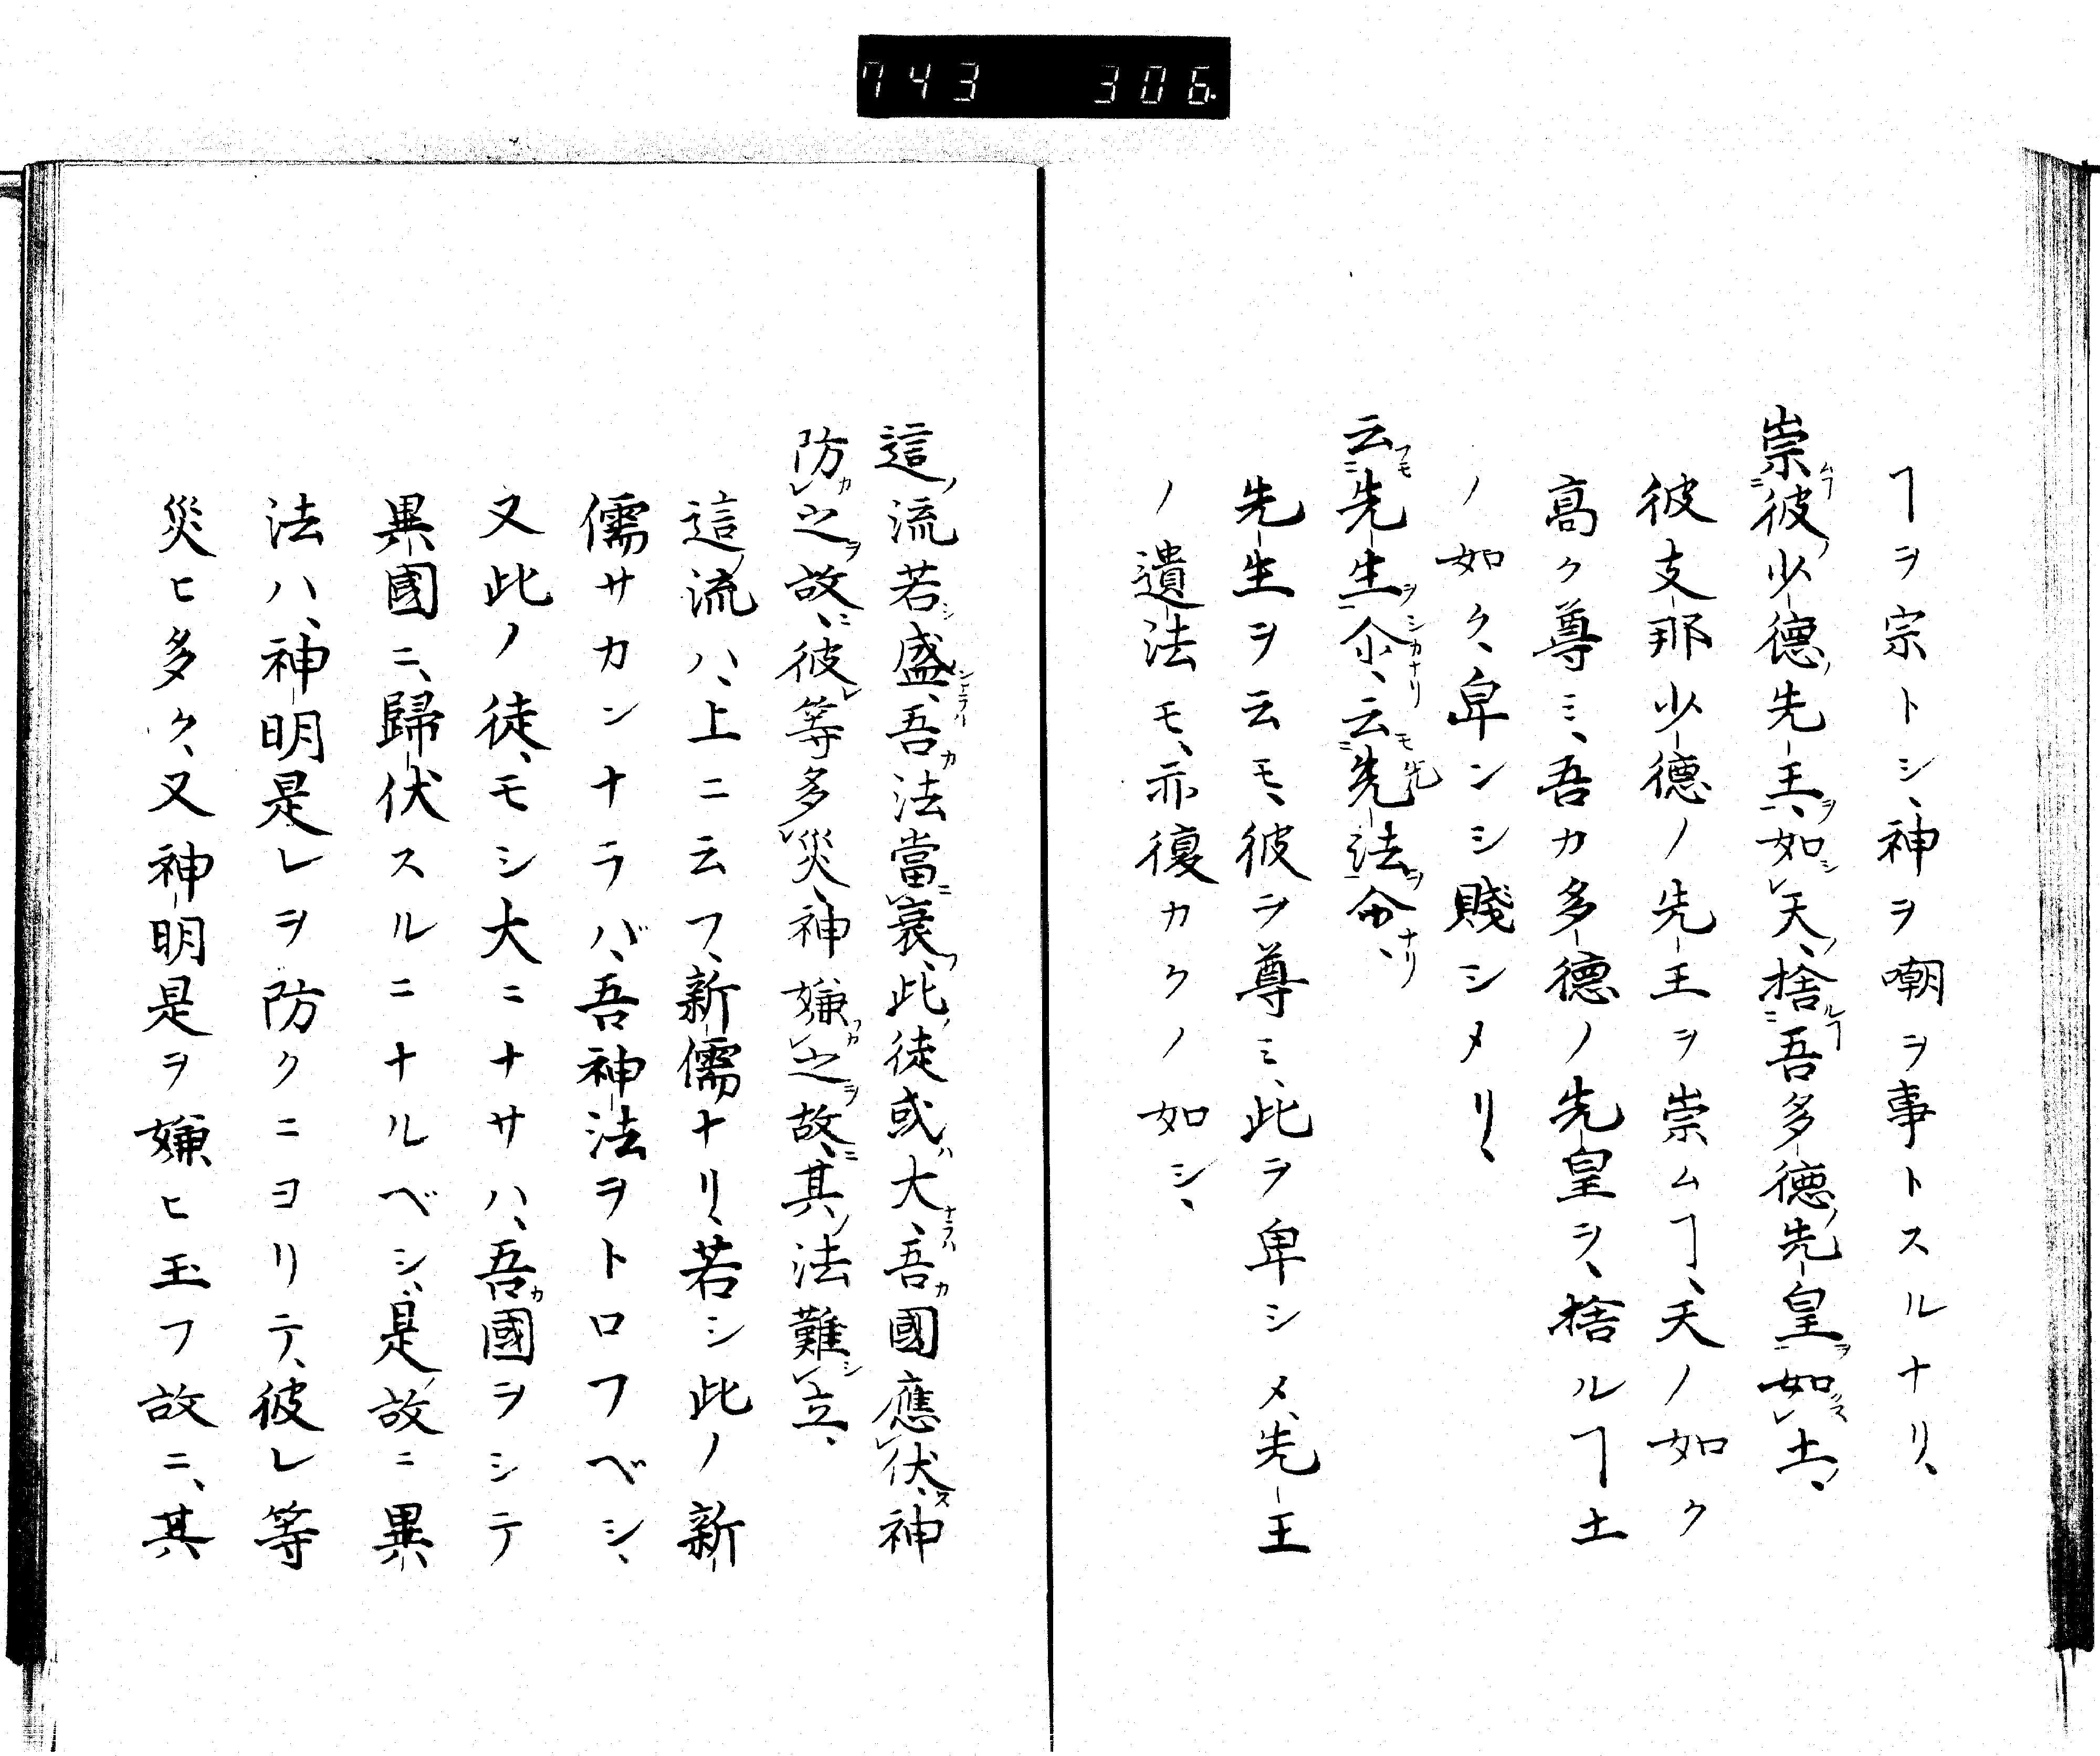 743 306
ヿヲ宗トシ、神ヲ嘲ヲ事トスルナリ、
崇彼少德先王、如天、捨吾多德先皇如土、
彼支那少德ノ先王ヲ崇ムヿ、天ノ如ク
高ク尊ミ、吾カ多德ノ先皇ヲ、捨ルヿ土
ノ如ク、卑ンシ賤シメリ、
云先生尒、云先法尒、
先生ヲ云モ、彼ヲ尊ミ、此ヲ卑シメ、先王
ノ遺法モ、亦復カクノ如シ、
這流若盛、吾法當衰、此徒或大、吾國應伏、神
防之故、彼等多災、神嫌之故、其法難立、
這流ハ、上ニ云フ、新儒ナリ、若シ此ノ新
儒サカンナラバ、吾神法ヲトロフベシ、
又此ノ徒、モシ大ニナサハ、吾カ國ヲシテ
異國ニ、歸伏スルニナルベシ、是故ニ異
法ハ、神明是レヲ防クニヨリテ、彼レ等
災ヒ多ク、又神明是ヲ嫌ヒ玉フ故ニ、其